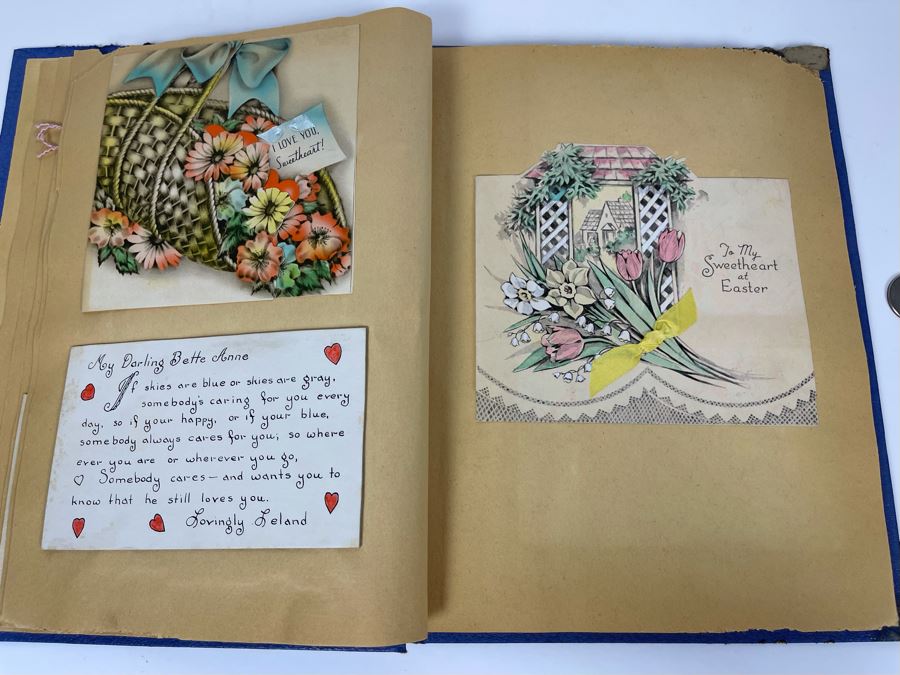 I LOVE YOU,
Sweetheart!
My Darling Bette Anne
If skies are blue or skies are gray,
somebody's caring for you every
day, so if your happy, or if your blue,
somebody always cares for you; so where
ever you are or wherever you go,
Somebody cares — and wants you to
know that he still loves you.
Lovingly Leland
To My
Sweetheart
at
Easter